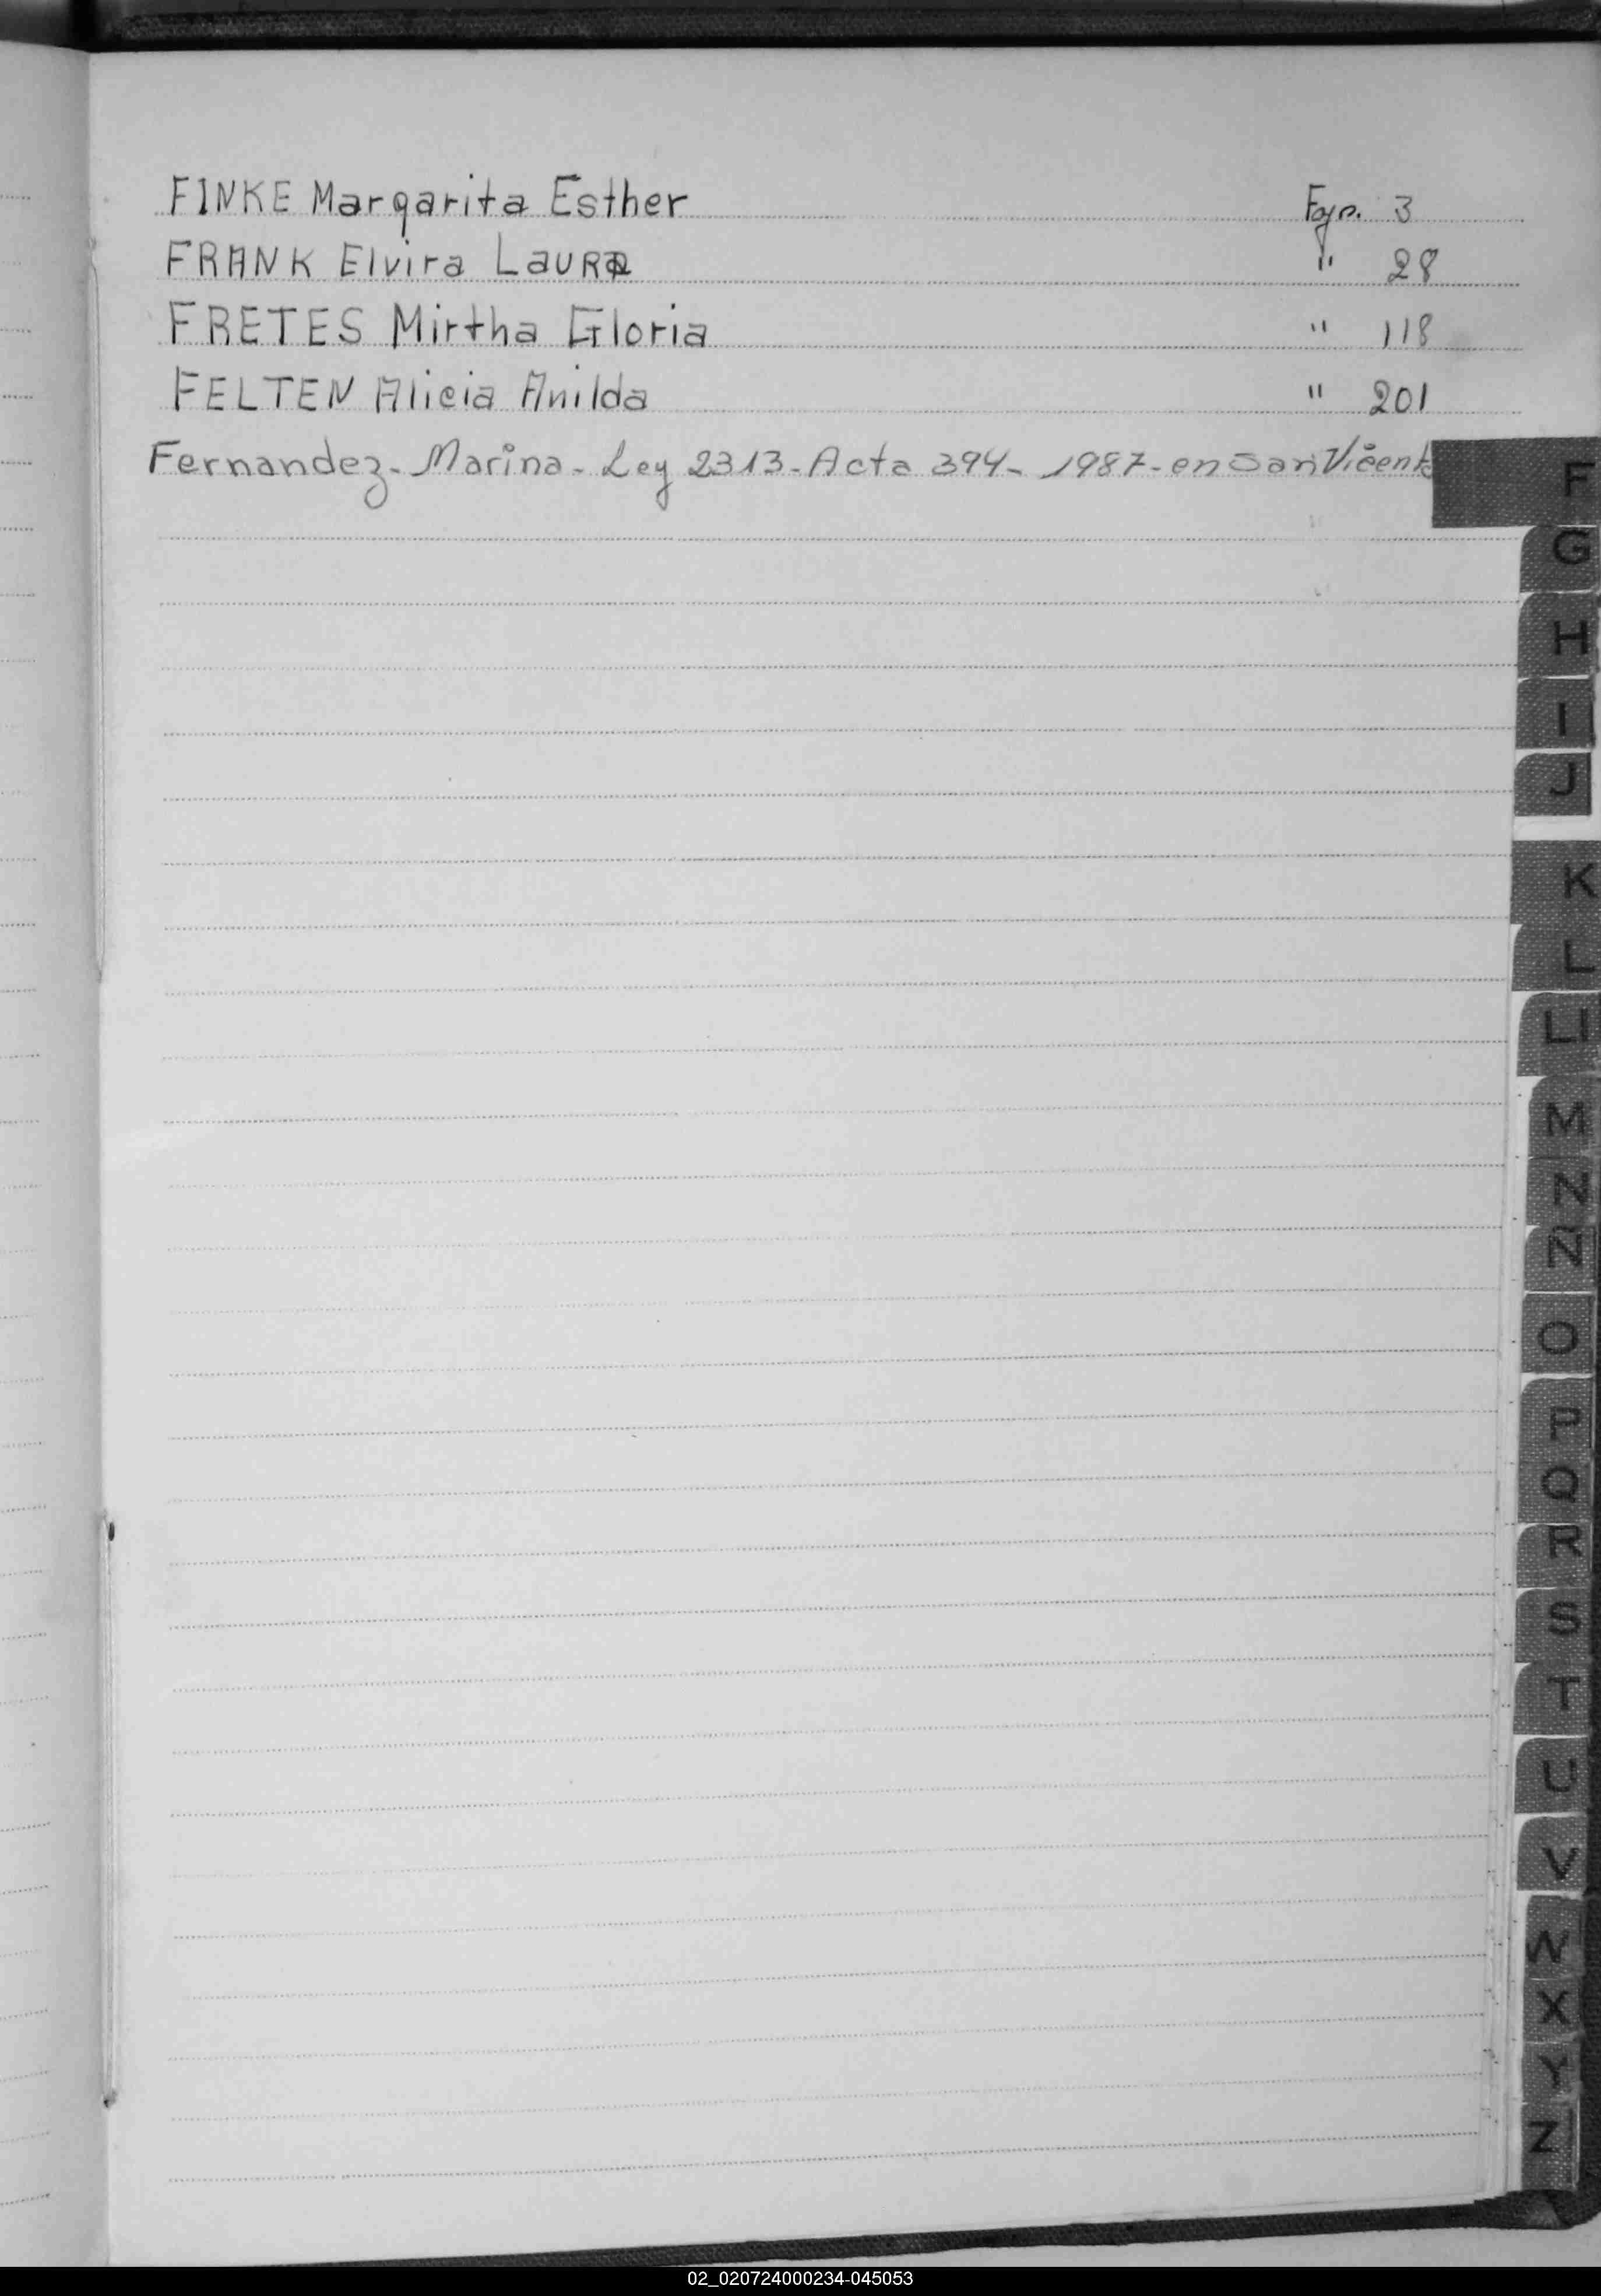 FINKE Margarita Esther Fojn. 3
FRANK Elvira Laura " 28
FRETES Mirtha Gloria " 118
FELTEN Alicia Anilda " 201
Fernandez - Marina - Ley 2313 - Acta 394 - 1987 - en San Vicente
F
G
H
I
J
K
L
Ll
M
N
Ñ
O
P
Q
R
S
T
U
V
W
X
Y
Z
02_020724000234-045053